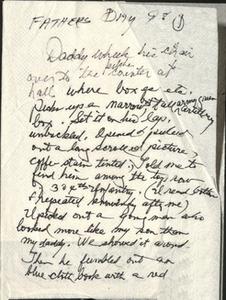 FATHERS DAY 98 (1)
Daddy wheels his chair
over to the counter at
hall where box
Picks up a narrow
box. Set it on his lap,
unlocked, opened & pulled
out a long scrolled picture
coffee stain tinted. Told me to
find him among the top row
of Infantry. (I'd read
& repeated knowingly after me)
I picked out a young man who
looked more like my son than
my daddy. We showed it around.
Then he fumbled out an
blue cloth book with a red